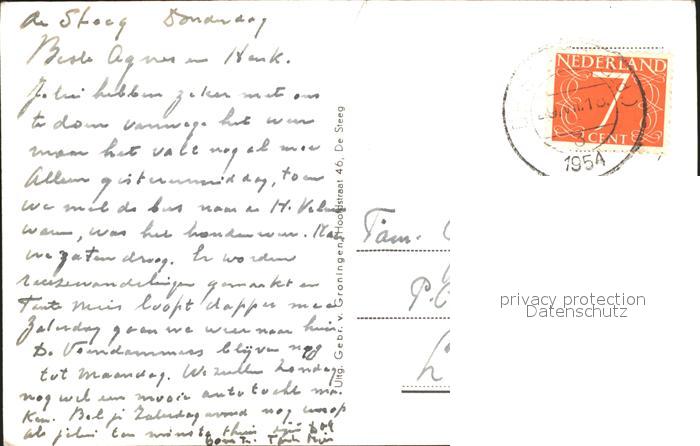 de Steeg Donderdag
Beste Agnes en Henk.
Jullie hebben zeker met ons
te doen vanwege het weer
maar het valt nogal mee
Alleen gisterenmiddag, toen
we met de bus naar de H. Veluwe
waren, was het hondenweer. Maar
we zaten droog. Er worden
reuzewandelingen gemaakt en
Tante Mies loopt dapper mee
Zaterdag gaan we weer naar huis
De Veendammers blijven nog
tot Maandag. We zullen Zondag
nog wel een mooie autotocht ma-
ken. Bel je Zaterdagavond nog
als jullie ten minste thuis zijn
Tante Mies
Uitg. Gebr. v. Groningen, Hoofdstraat 46, De Steeg
NEDERLAND
7
CENT
1954
Fam.
P.C
L
privacy protection
Datenschutz